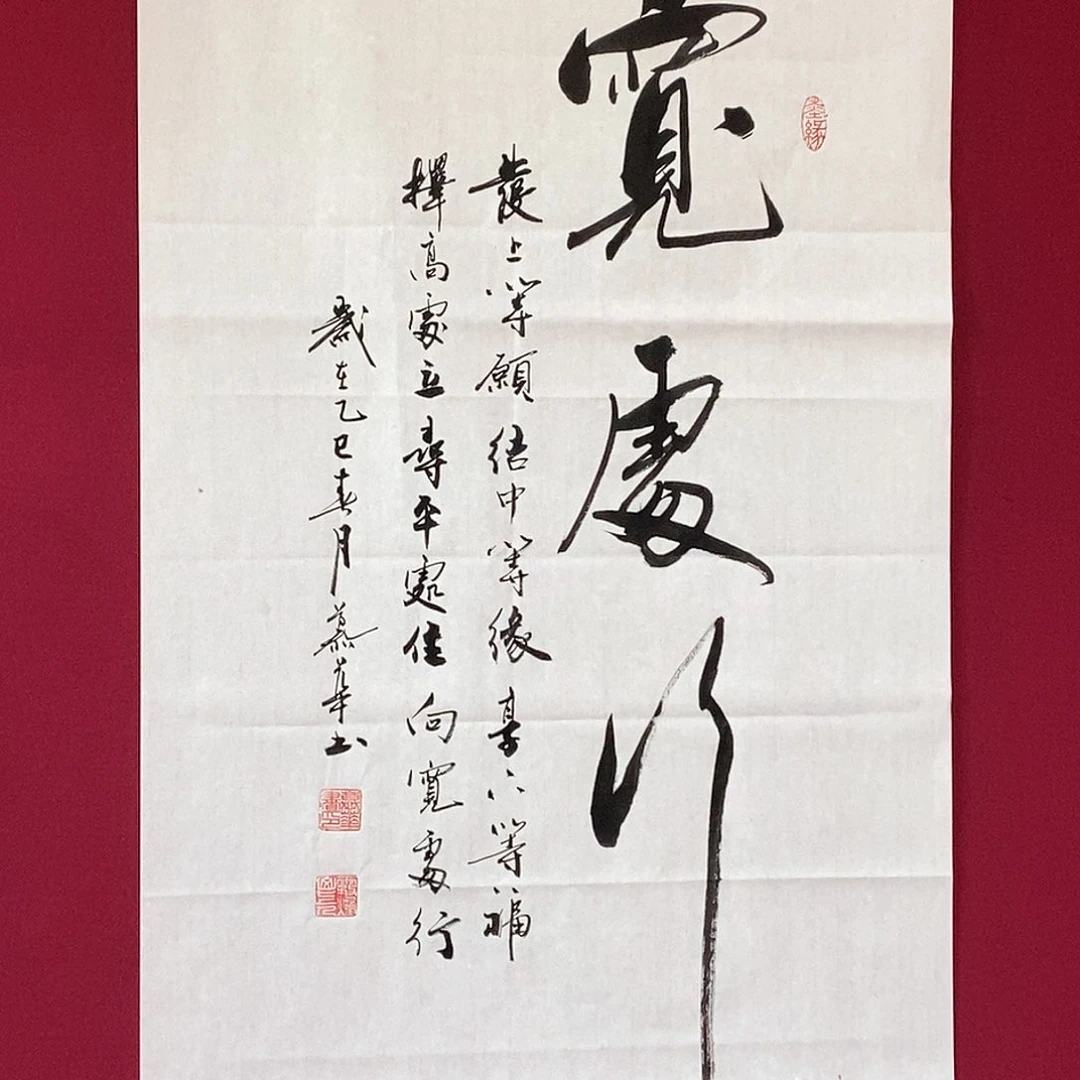 墨緣
寬處行
發上等願結中等緣享下等福
擇高處立尋平處住向寬處行
歲在乙巳春月慕華書